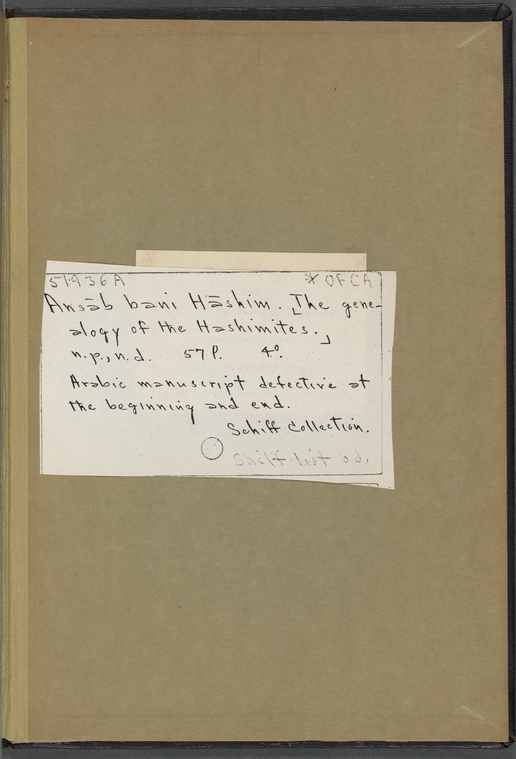 51936A *OFCA
Ansāb bani Hāshim. [The gene-
alogy of the Hashimites.]
n.p., n.d. 57 l. 4°.
Arabic manuscript defective at
the beginning and end.
Schiff Collection.